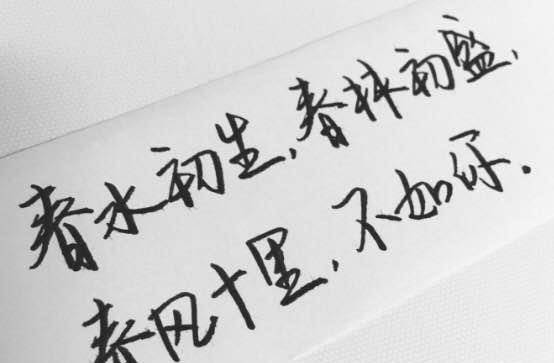 春水初生，春林初盛，
春风十里，不如你.